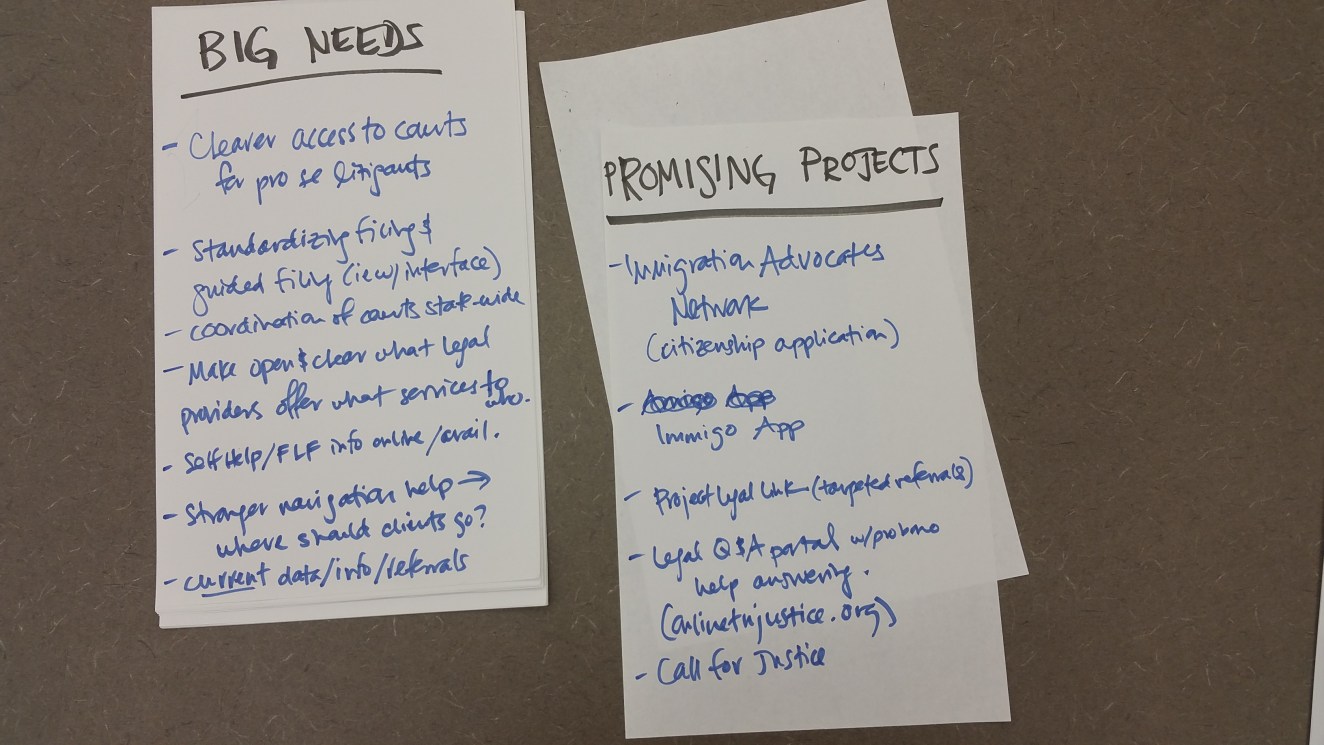 BIG NEEDS
- Clearer access to courts
for pro se litigants
- Standardizing filing &
guided filing (ie w/interface)
- coordination of courts state-wide
- Make open & clear what legal
providers offer what services to
who.
- Self Help/FLF info online/avail.
- Stronger navigation help →
where should clients go?
- current data/info/referrals
PROMISING PROJECTS
- Immigration Advocates
Network
(citizenship application)
- Amigo App
Immigo App
- Project Legal Link (targeted referrals)
- Legal Q&A portal w/pro bono
help answering.
(onlinetnjustice.org)
- Call for Justice